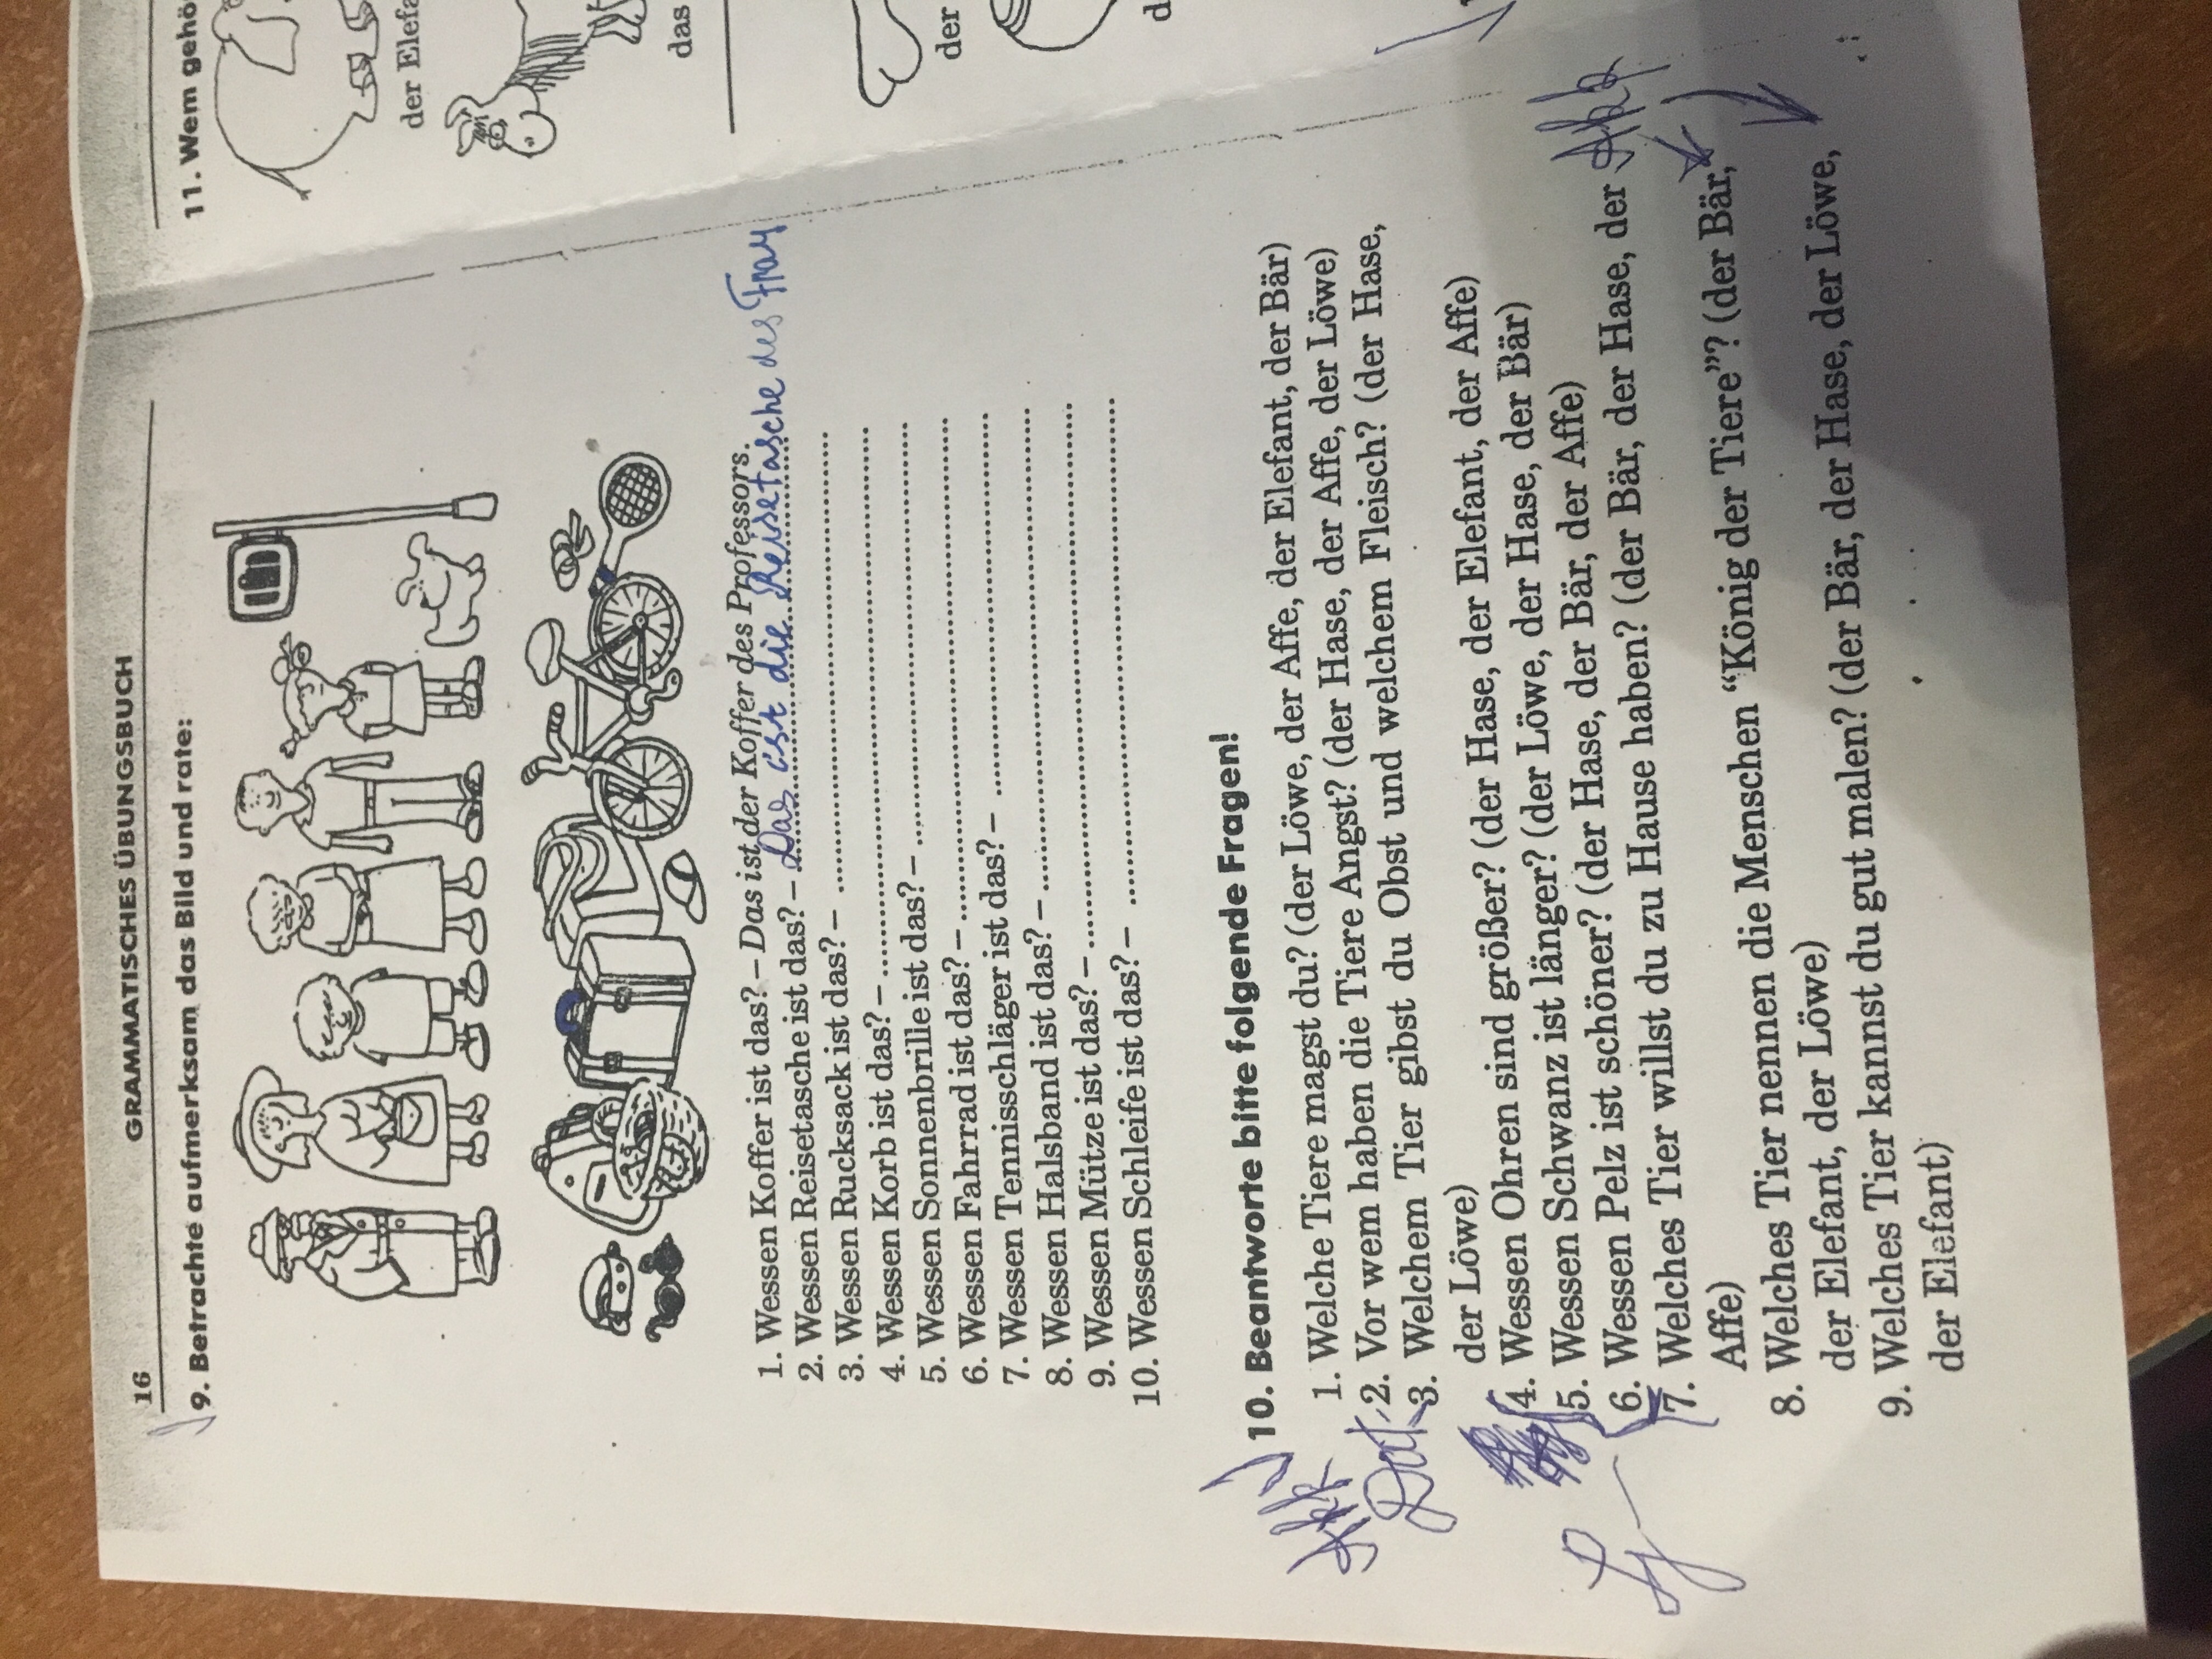 16
GRAMMATISCHES ÜBUNGSBUCH
9. Betrachte aufmerksam das Bild und rate:
1. Wessen Koffer ist das? – Das ist der Koffer des Professors.
2. Wessen Reisetasche ist das? – Das ist die Reisetasche des Frau
3. Wessen Rucksack ist das? – ........................................
4. Wessen Korb ist das? – ........................................
5. Wessen Sonnenbrille ist das? – ........................................
6. Wessen Fahrrad ist das? – ........................................
7. Wessen Tennisschläger ist das? – ........................................
8. Wessen Halsband ist das? – ........................................
9. Wessen Mütze ist das? – ........................................
10. Wessen Schleife ist das? – ........................................
10. Beantworte bitte folgende Fragen!
Akk
1. Welche Tiere magst du? (der Löwe, der Affe, der Elefant, der Bär)
Dat
2. Vor wem haben die Tiere Angst? (der Hase, der Affe, der Löwe)
3. Welchem Tier gibst du Obst und welchem Fleisch? (der Hase,
der Löwe)
4. Wessen Ohren sind größer? (der Hase, der Elefant, der Affe)
5. Wessen Schwanz ist länger? (der Löwe, der Hase, der Bär)
6. Wessen Pelz ist schöner? (der Hase, der Bär, der Affe)
7. Welches Tier willst du zu Hause haben? (der Bär, der Hase, der
Akk
Affe)
8. Welches Tier nennen die Menschen “König der Tiere”? (der Bär,
der Elefant, der Löwe)
9. Welches Tier kannst du gut malen? (der Bär, der Hase, der Löwe,
der Elefant)
11. Wem gehö
der Elefa
das
der
d